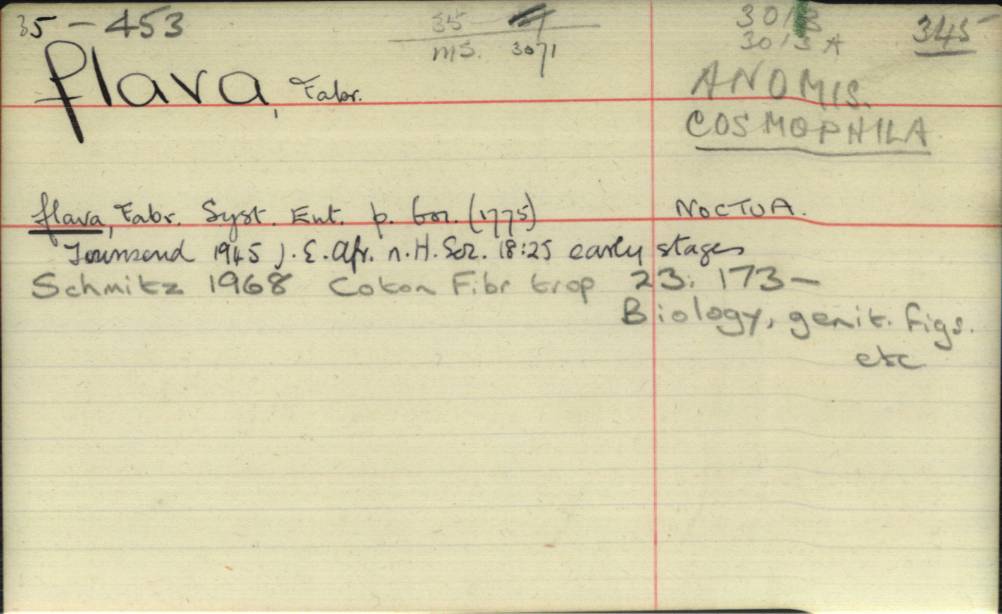 35-453
35 —
ms. 3071
3013
3013 A
345
flava, Fabr.
ANOMIS.
COSMOPHILA
flava, Fabr. Syst. Ent. p. 601. (1775) NOCTUA.
Townsend 1945 J. E. Afr. n. H. Soc. 18:25 early stages
Schmitz 1968 Coton Fibr trop 23: 173—
Biology, genit. figs.
etc